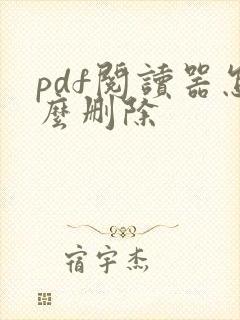 pdf閱讀器怎
麼刪除
宿宇杰